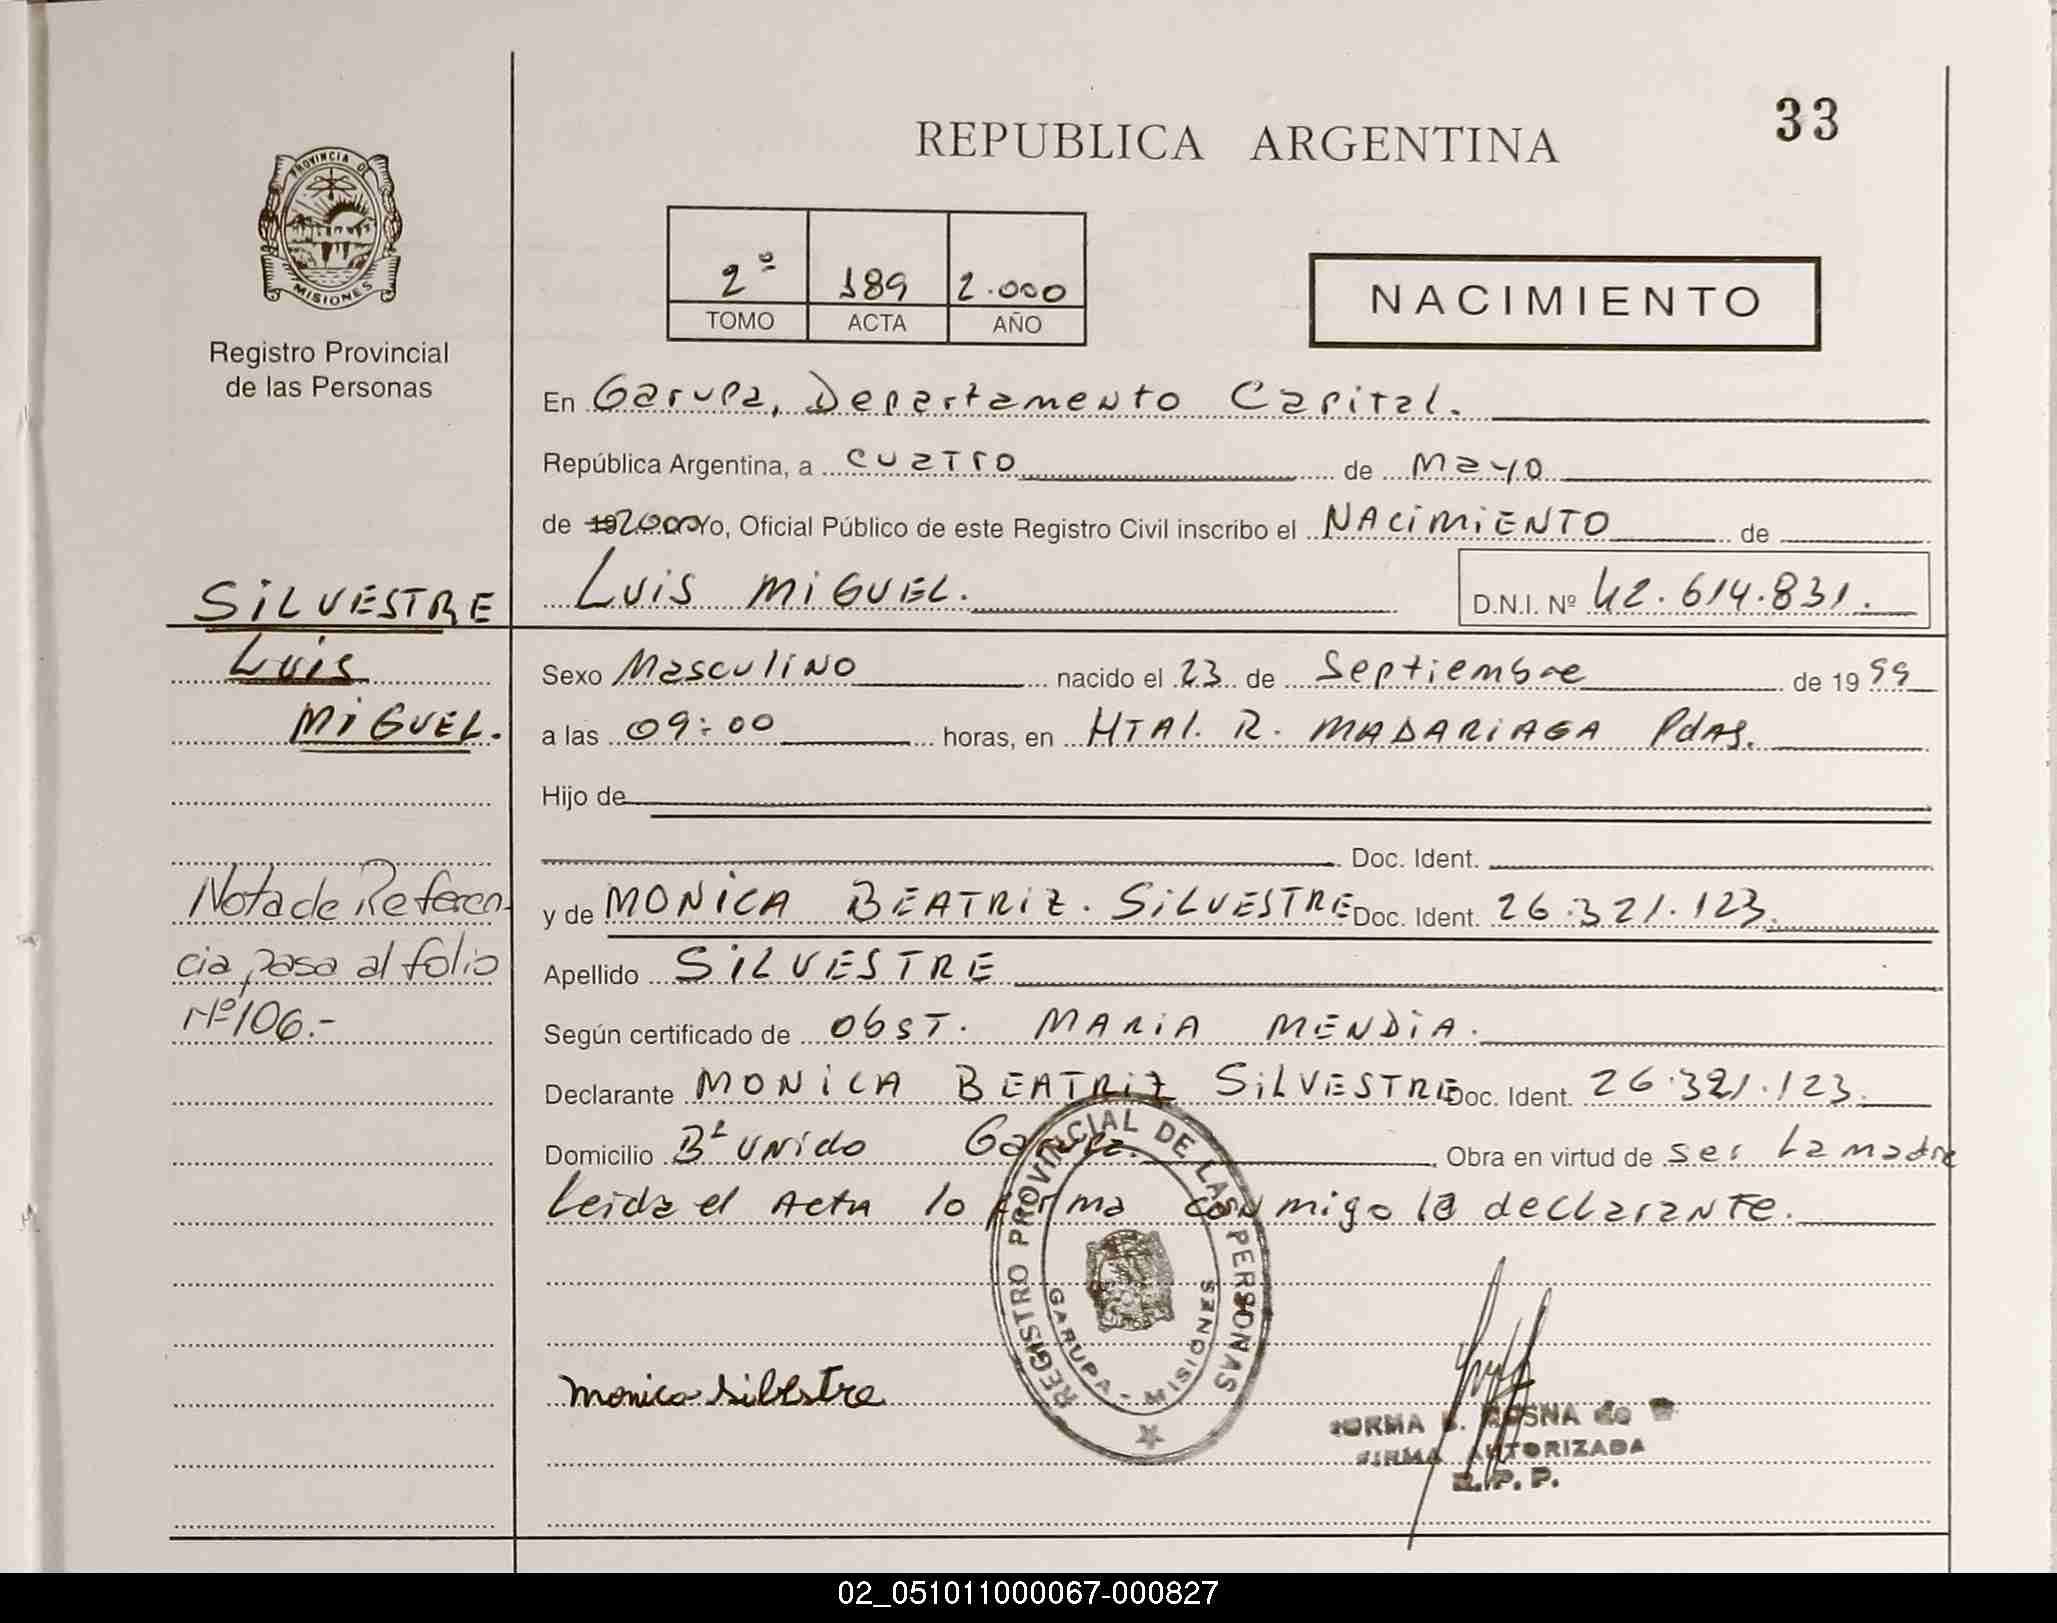 33
REPUBLICA ARGENTINA
PROVINCIA DE
MISIONES
Registro Provincial
de las Personas
2º 189 2.000
TOMO ACTA AÑO
NACIMIENTO
En Garupa, Departamento Capital.
República Argentina, a cuatro de Mayo
de 19 2000 Yo, Oficial Público de este Registro Civil inscribo el NACIMIENTO de
LUIS MIGUEL. D.N.I. Nº 42.614.831.
SILVESTRE
Luis
MIGUEL.
Sexo Masculino nacido el 23 de Septiembre de 1999
a las 09:00 horas, en HTAL. R. MADARIAGA Pdas.
Hijo de
Doc. Ident.
y de MONICA BEATRIZ. SILVESTRE Doc. Ident. 26.321.123.
Apellido SILVESTRE
Según certificado de OBST. MARIA MENDIA.
Declarante MONICA BEATRIZ SILVESTRE Doc. Ident. 26.321.123.
Domicilio Bº Unido Garupa. Obra en virtud de ser La madre
Leida el Acta lo firma conmigo la declarante.
Nota de Referen-
cia, pasa al folio
Nº 106.-
REGISTRO PROVINCIAL DE LAS PERSONAS
GARUPA - MISIONES
Monica Silbestre
NORMA B. de
FIRMA AUTORIZADA
R.P.P.
02_051011000067-000827